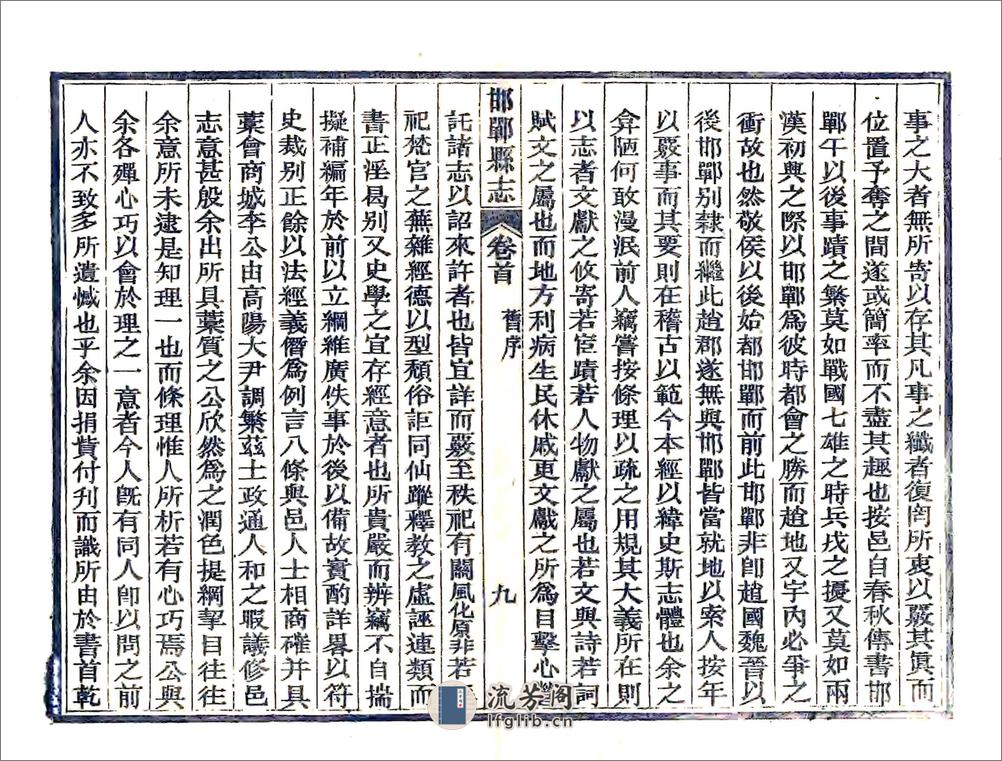 事之大者無所寄以存其凡事之纖者復罔所衷以覈其眞而
位置予奪之間遂或簡率而不盡其趣也按邑自春秋傳書邯
鄲午以後事蹟之繁莫如戰國七雄之時兵戎之擾又莫如兩
漢初興之際以邯鄲爲彼時都會之勝而趙地又宇內必爭之
衝故也然敬侯以後始都邯鄲而前此邯鄲非卽趙國魏晉以
後邯鄲別隸而繼此趙郡遂無與邯鄲皆當就地以索人按年
以覈事而其要則在稽古以範今本經以緯史斯志體也余之
弇陋何敢漫泯前人竊嘗按條理以疏之用規其大義所在則
以志者文獻之攸寄若宦蹟若人物獻之屬也若文與詩若詞
賦文之屬也而地方利病生民休戚更文獻之所爲目擊心
邯鄲縣志
卷首
舊序
九
託諸志以詔來許者也皆宜詳而覈至秩祀有關風化原非若
祀梵宮之蕪雜經德以型頽俗詎同仙蹤釋教之虛誣連類而
書正淫曷別又史學之宜存經意者也所貴嚴而辨竊不自揣
擬補編年於前以立綱維廣佚事於後以備故實酌詳畧以符
史裁別正餘以法經義僭爲例言八條與邑人士相商確并具
藁會商城李公由高陽大尹調繁茲土政通人和之暇議修邑
志意甚殷余出所具藁質之公欣然爲之潤色提綱挈目往往
余意所未逮是知理一也而條理惟人所析若有心巧焉公與
余各殫心巧以會於理之一意者今人旣有同人卽以問之前
人亦不致多所遺憾也乎余因捐貲付刊而識所由於書首乾
流芳阁
lfglib.cn